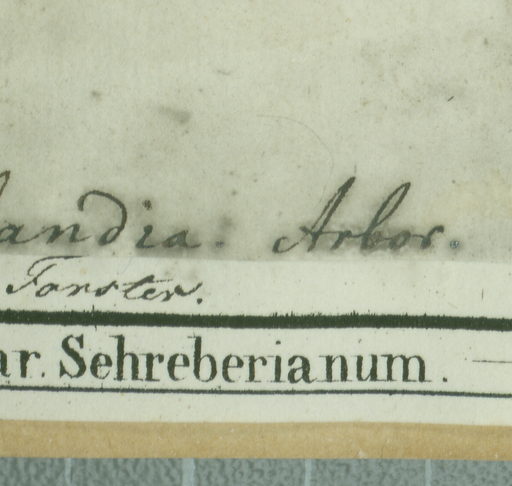 andia. Arbor.
Forster.
ar. Sehreberianum.